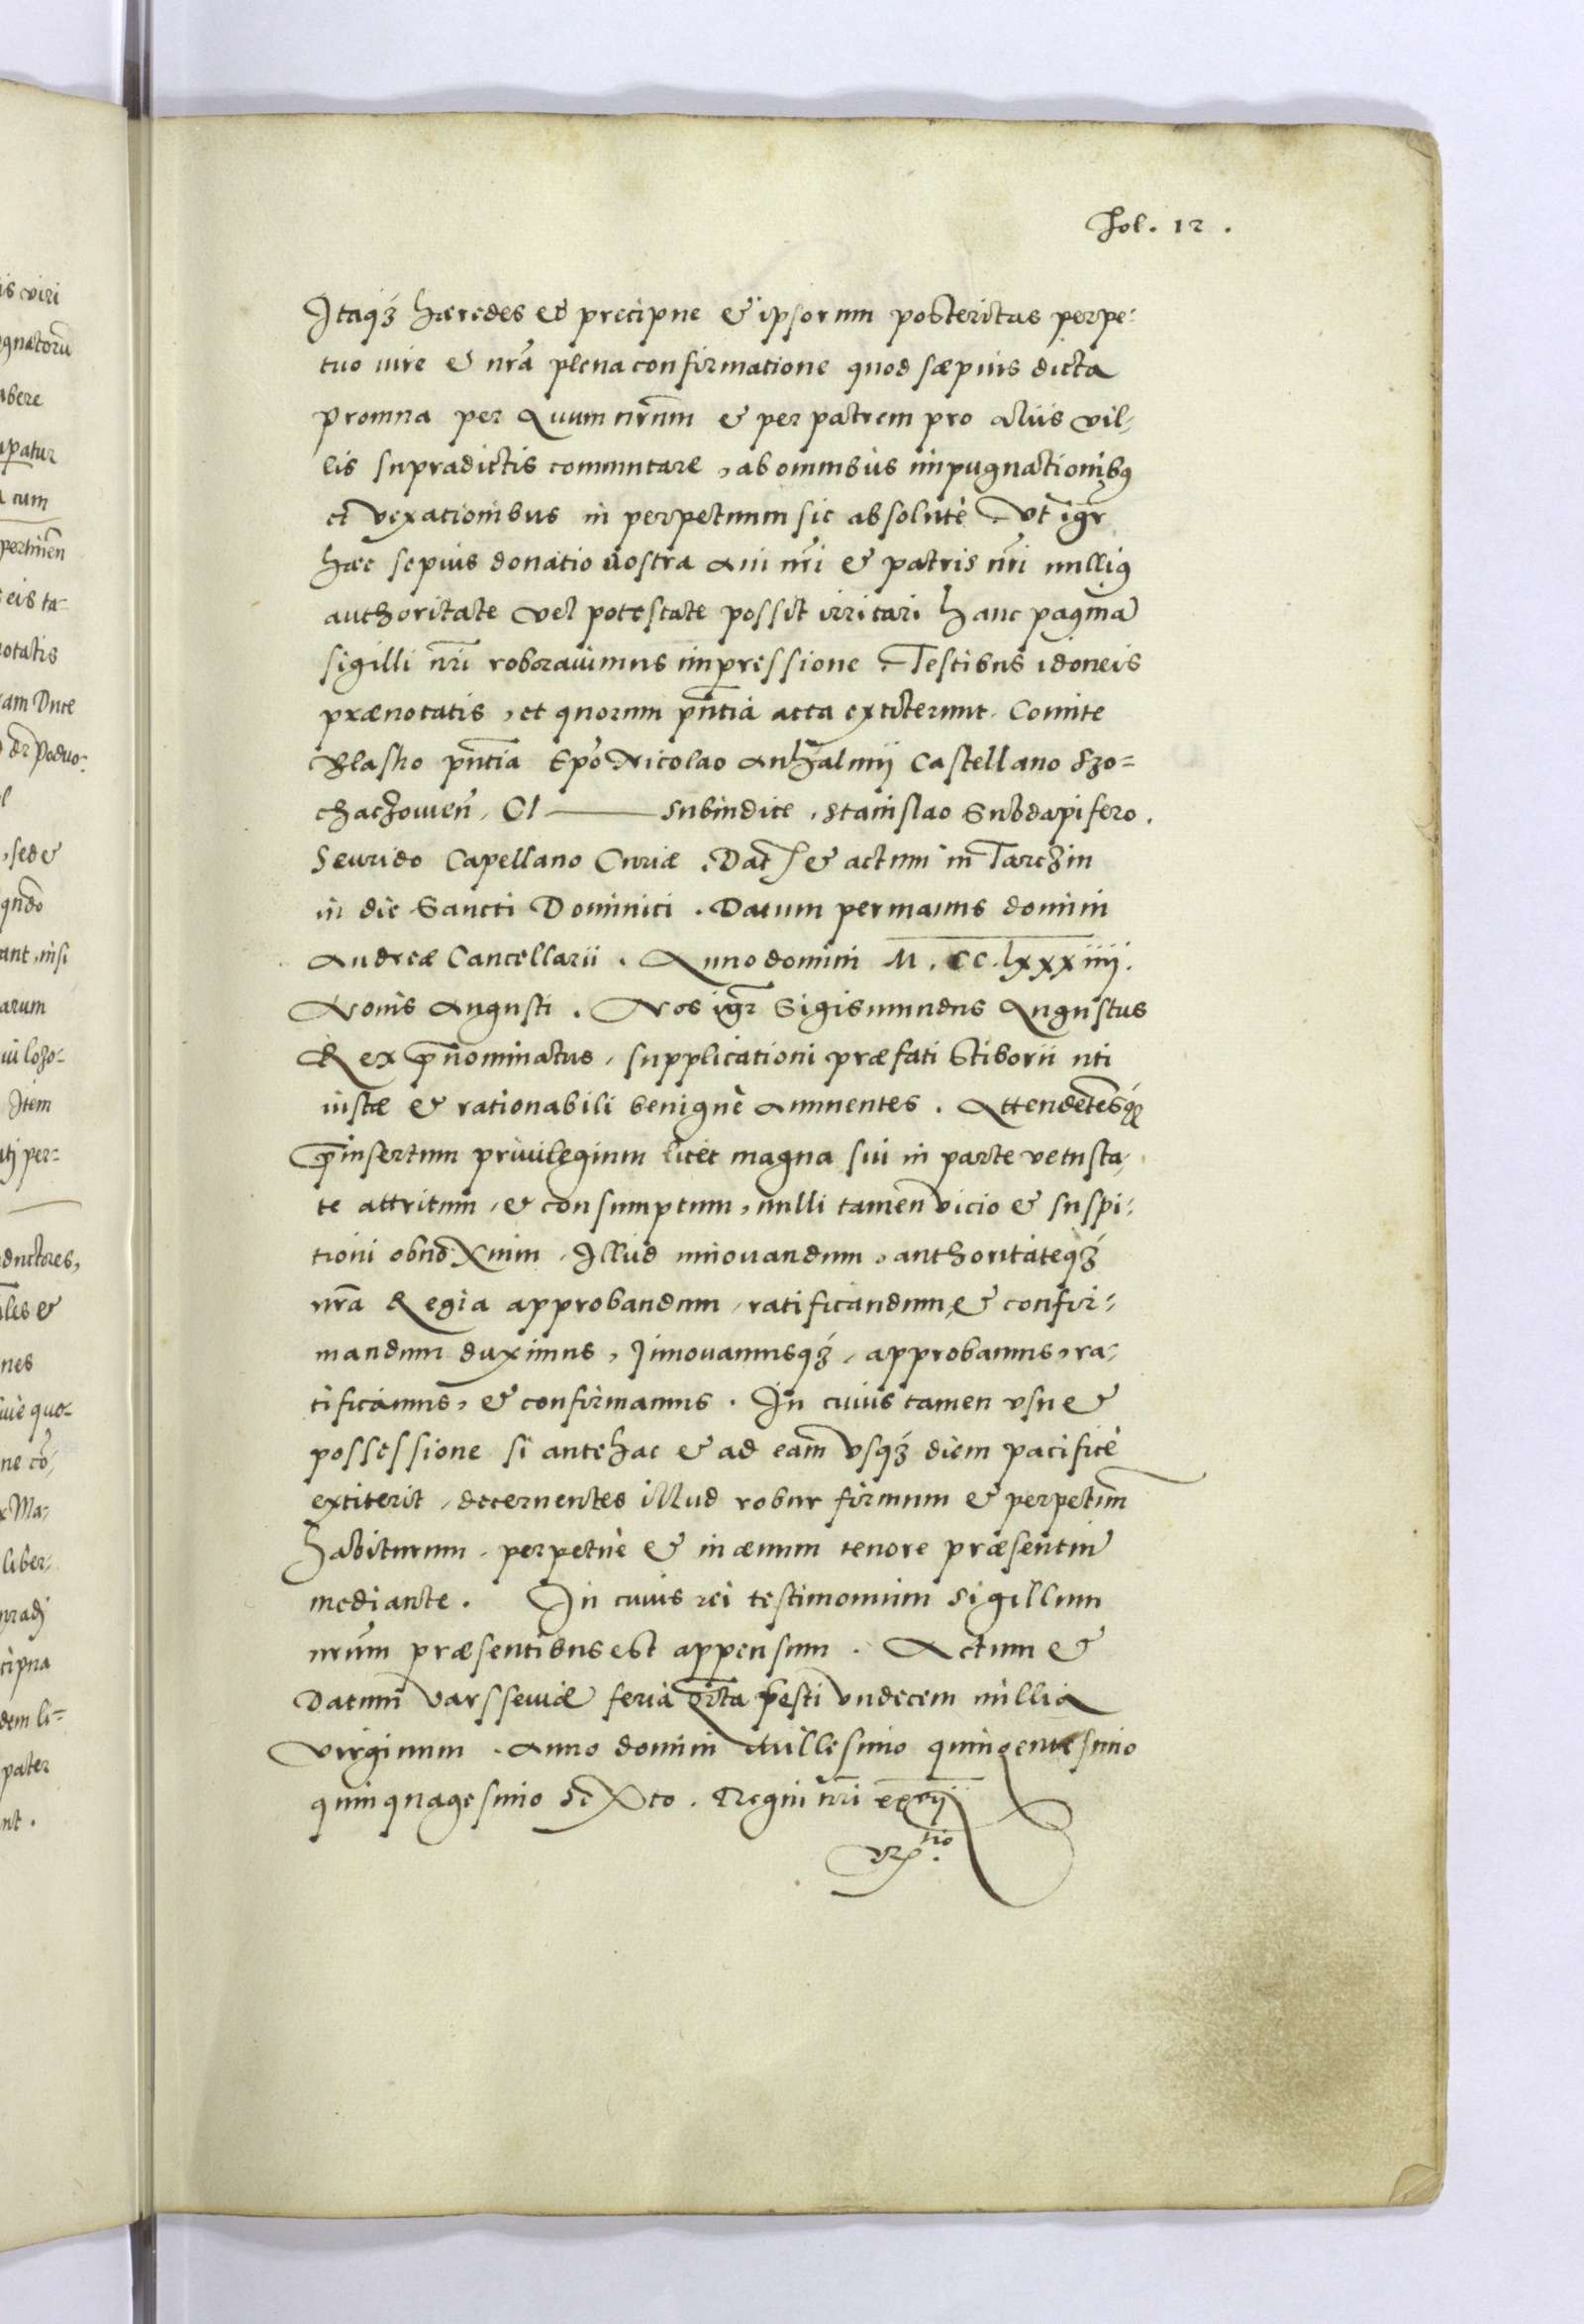 Fol. 12.
Itaq₃ hæredes et precipue & ipsorum posteritas perpe:
tuo iure & nr̃a plena confirmatione quod sæpius dicta
Promna per Auum nr̃um & per patrem pro aliis vil-
lis supradictis commutare, ab omnibus impugnationibꝯ
et vexationibus in perpetuum sic absolutè. Vt igr̃
hæc sepius donatio nostra aui nr̃i & patris nr̃i nulliꝯ
authoritate vel potestate possit irritari hanc paginã
sigilli nr̃i roborauimus impressione. Testibus idoneis
prænotatis, et quorum pn̄tia acta extiterunt. Comite
Blasko pn̄tia Ep̃o Nicolao Anhalmij Castellano Szo=
chaczouien̄, Cl——— Subiudice, Stanislao Subdapifero.
Seurido Capellano Curiæ. Dat̃ & actum in Tarczin
in die Sancti Dominici. Datum per manus domini
Andreæ Cancellarii. Anno domini M. CC. lxxxiiij.
Nonis Augusti. Nos igr̃ Sigismundus Augustus
Rex p̄nominatus, supplicationi præfati Stiborii uti
iustæ & rationabili benignè annuentes. Attendẽtesq₃
p̄insertum priuilegium licèt magna sui in parte vetusta-
te attritum, & consumptum, nulli tamen vicio & suspi:
tioni obnoxium. Illud innouandum, authoritateq₃
nr̃a Regia approbandum, ratificandum, & confir:
mandum duximus, Innouamusq₃, approbamus, ra-
tificamus, & confirmamus. In cuius tamen vsu &
possessione si antehac & ad eam vsq₃ diem pacificè
extiterit, decernentes illud robur firmum & perpetuũ
habiturum, perpetuè & in æuum tenore præsentiũ
mediante. In cuius rei testimonium Sigillum
nr̃um præsentibus est appensum. Actum &
Datum Varssewiæ feria qr̃ta festi vndecem millia
virginum. Anno domini Millesimo quingentesimo
quinquagesimo Sexto. Regni nr̃i